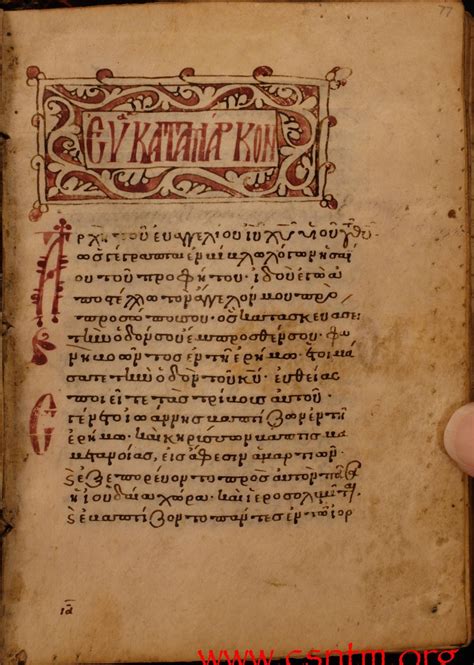 77
ΕΥΑ ΚΑΤΑ ΜΑΡΚΟΝ
Ἀρχὴ τοῦ εὐαγγελίου ἰυ χυ υἱοῦ τοῦ θυ
ὡς γέγραπται ἐν λόγων ἡσαΐ
ου τοῦ προφήτου. ἰδοὺ ἐγὼ ἀ
ποστέλλω τὸν ἄγγελόν μου πρὸ
προσώπου σου. ὃς κατασκευάσει
τὴν ὁδόν σου ἔμπροσθέν σου. φω
νὴ βοῶντος ἐν τῆ ἐρήμω. ἑτοιμά
σατε τὴν ὁδὸν τοῦ κυ. εὐθείας
ποιεῖτε τὰς τρίβους αὐτοῦ.
Ἐγένετο ἰωάννης βαπτίζων ἐν τῆ
ἐρήμω. καὶ κηρύσσων βάπτισμα
μετανοίας, εἰς ἄφεσιν ἁμαρτιῶν.
καὶ ἐξεπορεύοντο πρὸς αὐτὸν πᾶσα
ἡ ἰουδαία χώρα. καὶ ἱεροσολυμῖται
καὶ ἐβαπτίζοντο πάντες ἐν τῶ ἰορ
ια
www.csntm.org